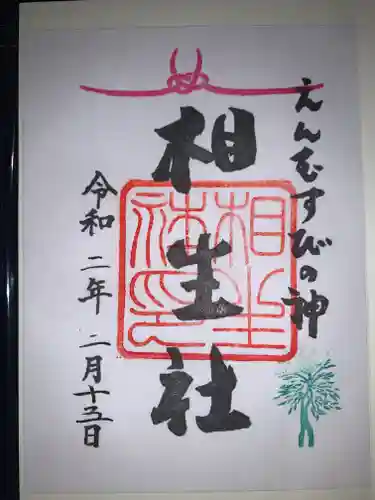 えんむすびの神
相生社
相生社印
令和二年二月十五日